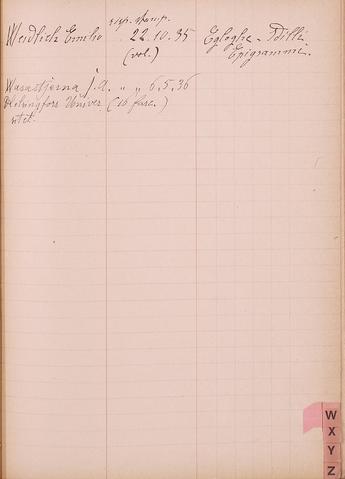 risp. stamp.
Weidlich Emilio 22.10.35 Egloghe - Idilli
(vol.) Epigrammi.
Wasastjerna J. A. " " 6.5.36
Helsingfors Univer (16 fasc.)
sitet.
W
X
Y
Z